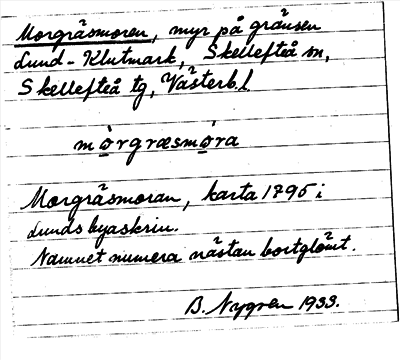 Morgräsmoren, myr på gränsen
Lund-Klutmark, Skellefteå sn,
Skellefteå tg, Västerb.l.
mo̱rgræsmo̱ra
Morgräsmoran, karta 1795 i
Lunds byaskrin.
Namnet numera nästan bortglömt.
B. Nygren 1933.